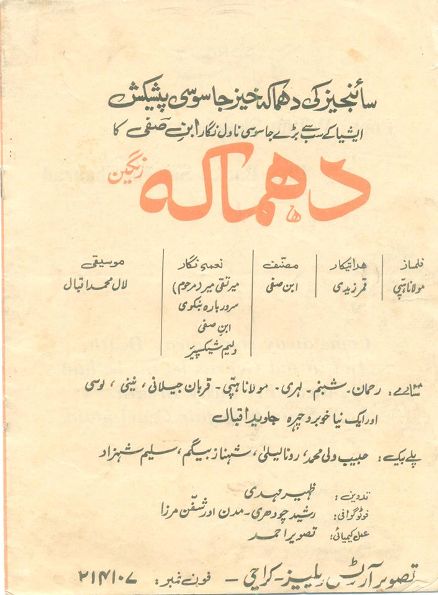 سائنجیز کی دھماکہ خیز جاسوسی پیشکش
ایشیا کے سب سے بڑے جاسوسی ناول نگار ابن صفی کا
دھماکہ رنگین
فلمساز
مولانا ہپّی
ھدایتکار
قمر زیدی
مصنّف
ابن صفی
نغمہ نگار
میر تقی میر (مرحوم)
سرور بارہ بنکوی
ابن صفی
ولیم شیکسپیر
موسیقی
لال محمد اقبال
ستارے: رحمان۔ شبنم۔ لہری۔ مولانا ہپّی۔ قربان جیلانی، نینی، لوسی
اور ایک نیا خوبرو چہرہ جاوید اقبال
پلے بیک: حبیب ولی محمد، رونا لیلیٰ، شہناز بیگم، سلیم شہزاد
تدوین: ظہیر مہدی
فوٹو گرافی: رشید چودھری۔ مدن اور شفّن مرزا
عمل کیمیائی: تصویر احمد
تصویر آرٹس ریلیز۔ کراچی – فون نمبر: ۲۱۴۱۰۷